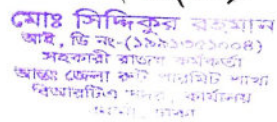 মোঃ সিদ্দিকুর রহমান
আই, ডি নং-(১৯৯১৩৫১০০৪)
সহকারী রাজস্ব কর্মকর্তা
আন্তঃ জেলা রুট পারমিট শাখা
বিআরটিএ সদর কার্যালয়
ঢাকা